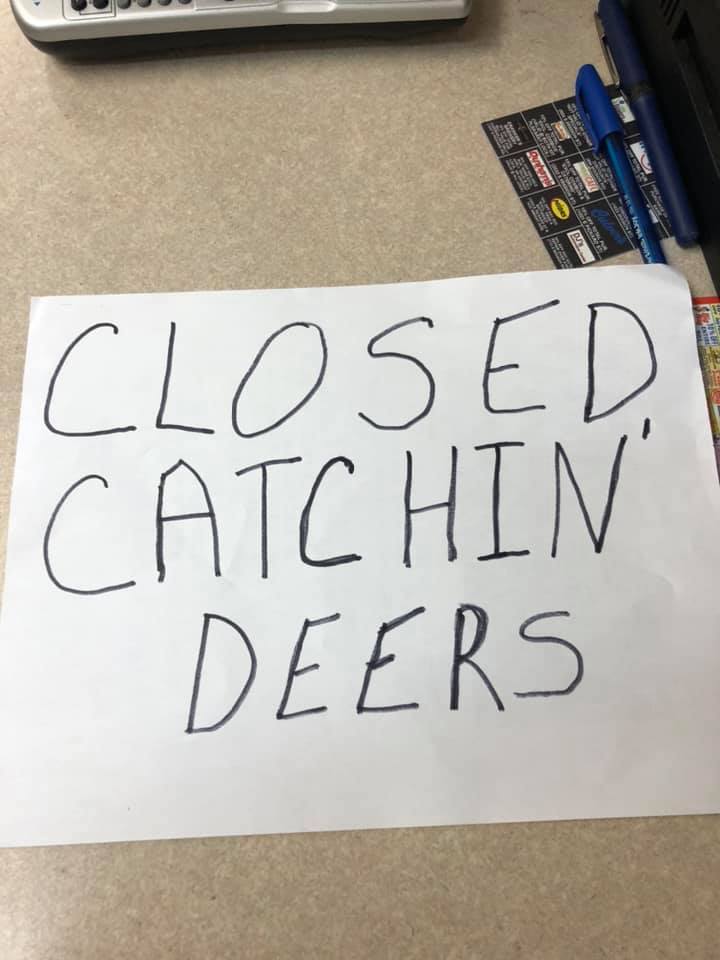 CLOSED,
CATCHIN'
DEERS